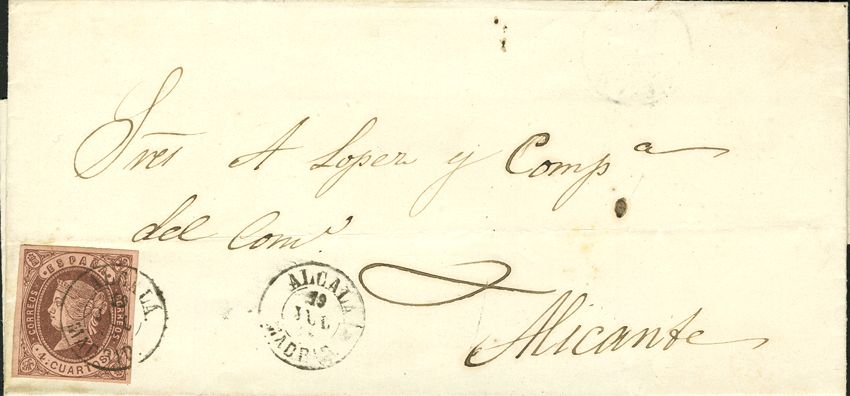 Sres A Lopez y Comp.a
del Com.o
Alicante
ESPAÑA
CORREOS CORREOS
4 CUARTOS
ALCALA
ALCALA
19
JUL
MADRID